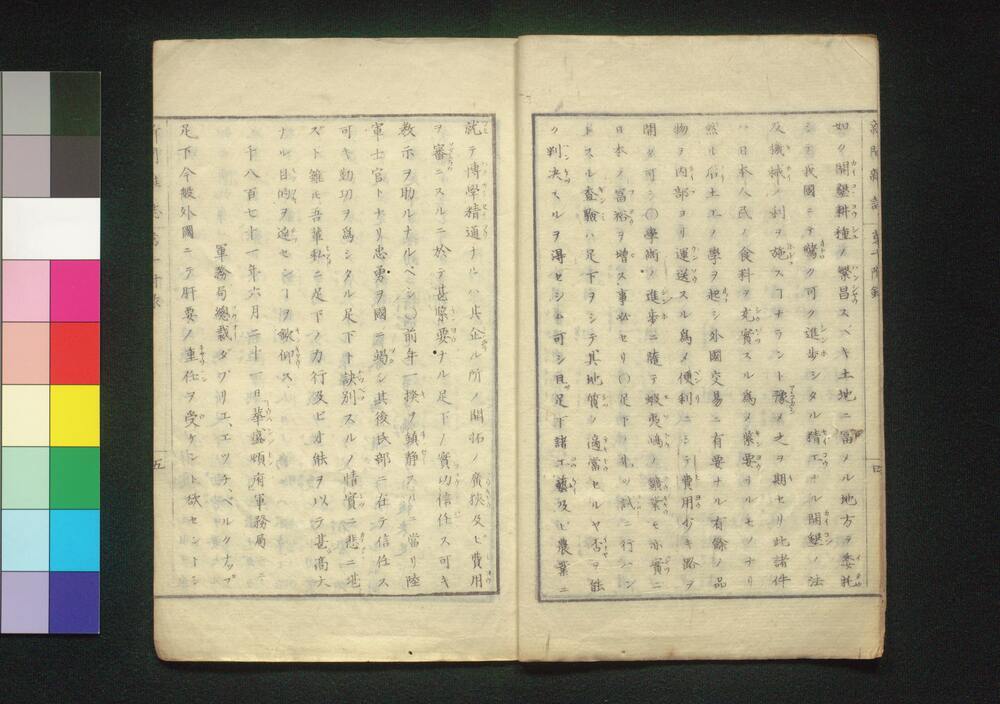 如ク開墾耕種ノ繁昌スベキ土地ニ冨メル地方ヲ委託
シテ我國ニテ驚ク可ク進歩シタル精工ナル開墾ノ法
及機械ノ利ヲ施スヿナラント豫メ之ヲ期セリ此諸件
ハ日本人民ノ食料ヲ充實スル為メ緊要ナルモノナリ
然ル后土工ノ學ヲ起シ外國交易ニ有要ナル有餘ノ品
物ヲ内部ヨリ運送スル為メ便利ニシテ費用少キ路ヲ
開ク可シ〇學術ノ進歩ニ隨テ蝦夷嶋ノ鑛業モ亦實ニ
日本ノ冨裕ヲ増ス事必セリ〇足下ノ此ノ試ニ行ハン
トスル查驗ハ足下ヲシテ其地質ノ適當セルヤ否ヲ能
ク判决スルヲ得セシム可シ且足下諸工藝及ヒ農業ニ
就テ博學精通ナルハ其企ル所ノ開拓ノ廣狹及ヒ費用
ヲ審ニスルニ於テ甚緊要ナル足下ノ實功信任ス可キ
教示ヲ助ルナルベシ〇前年一揆ヲ鎮静スルニ當リ陸
軍士官トナリ忠勇ヲ國ニ竭シ其後民部ニ在テ信任ス
可キ勤功ヲ為シタル足下ト訣別スルノ情實ニ悲ニ堪
ズト雖モ吾輩私ニ足下ノ力行及ビ才能ヲ以テ甚高大
ナル目的ヲ逸セシヿヲ欽仰ス
千八百七十一年六月二十一日華盛頓府軍務局ニ
軍務局總裁ダブリエ、エッチ、ベルクナップ
足下今般外國ニテ肝要ノ重任ヲ受ケント欲セシヿシ
五